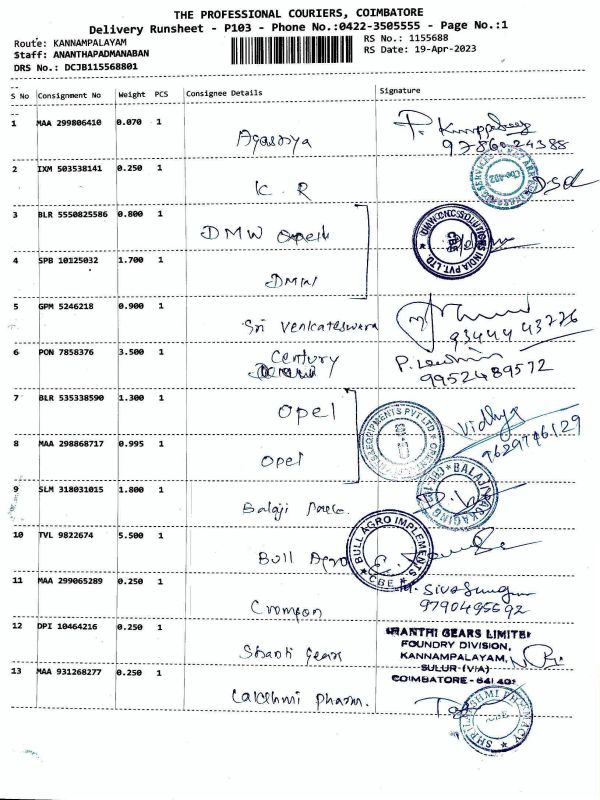 THE PROFESSIONAL COURIERS, COIMBATORE
Delivery Runsheet - P103 - Phone No.:0422-3505555 - Page No.:1
Route: KANNAMPALAYAM
Staff: ANANTHAPADMANABAN
DRS No.: DCJB115568801
RS No.: 1155688
RS Date: 19-Apr-2023
S No Consignment No Weight PCS Consignee Details Signature
1 MAA 299806410 0.070 1 Agassya
9786024388
2 IXM 503538141 0.250 1 K. R
3 BLR 5550825586 0.800 1 DMW
DMW CNC SOLUTIONS INDIA PVT. LTD. CBE
4 SPB 10125032 1.700 1 DMW
5 GPM 5246218 0.900 1 Sri Venkateswara
9344443776
6 PON 7858376 3.500 1 Century
9952489572
7 BLR 535338590 1.300 1 Opel
Vidhya
8 MAA 298868717 0.995 1 Opel
EQUIPMENTS PVT LTD
9 SLM 318031015 1.800 1 Balaji
BALAJI PACKAGING
10 TVL 9822674 5.500 1 Bull Agro
BULL AGRO IMPLEMENTS CBE
11 MAA 299065289 0.250 1 Crompon
9790495692
12 DPI 10464216 0.250 1 Shanti Gears
SHANTHI GEARS LIMITED
FOUNDRY DIVISION,
KANNAMPALAYAM,
SULUR (VIA)
COIMBATORE - 641 402
13 MAA 931268277 0.250 1 Lakshmi Pharm.
SHRI LAKSHMI PHARMACY